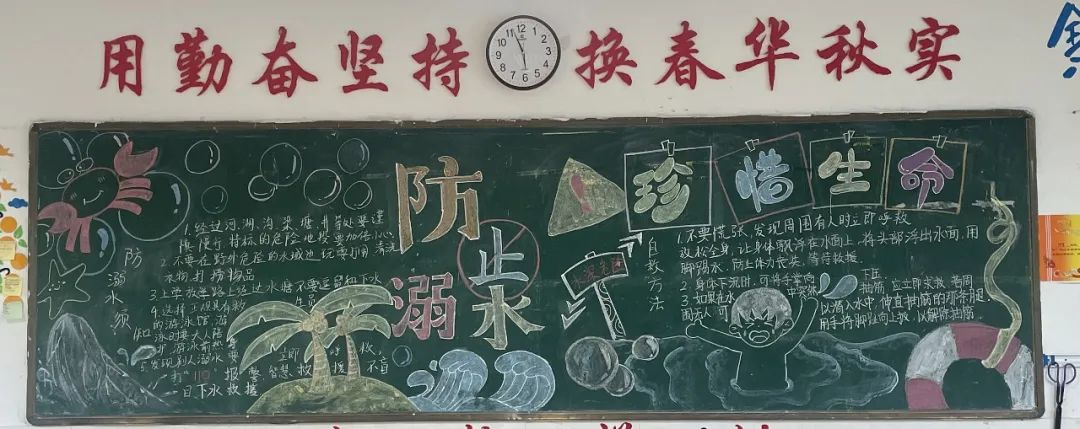 用勤奋坚持 换春华秋实
12 1 2 3 4 5 6 7 8 9 10 11
防溺水
止
珍惜生命
防溺水须知
1.经过河、湖、沟、渠、塘、井
的危险地段要加倍小心
2.不要在野外危险的水域边玩耍
衣物、打捞物品
3.上学放学路上经过水塘不要逗留和下水
4.选择
的游泳馆,游
泳时要大人陪
5.发现别人溺水要
立即呼救,
打"110"报警 智慧救援,不盲
目下水救援
自救方法
1.不要慌张,发现周围有人时立即呼救
放松全身,让身体飘浮在水面上,将头部浮出水面,用
脚踢水,防止体力丧失,等待救援。
2.身体下沉时,可将手掌向下压
3.如果在水中突然抽筋,应立即求救,若周
围无人,可以潜入水中,伸直抽筋的那条腿,
用手将脚趾向上扳,以解除抽筋。